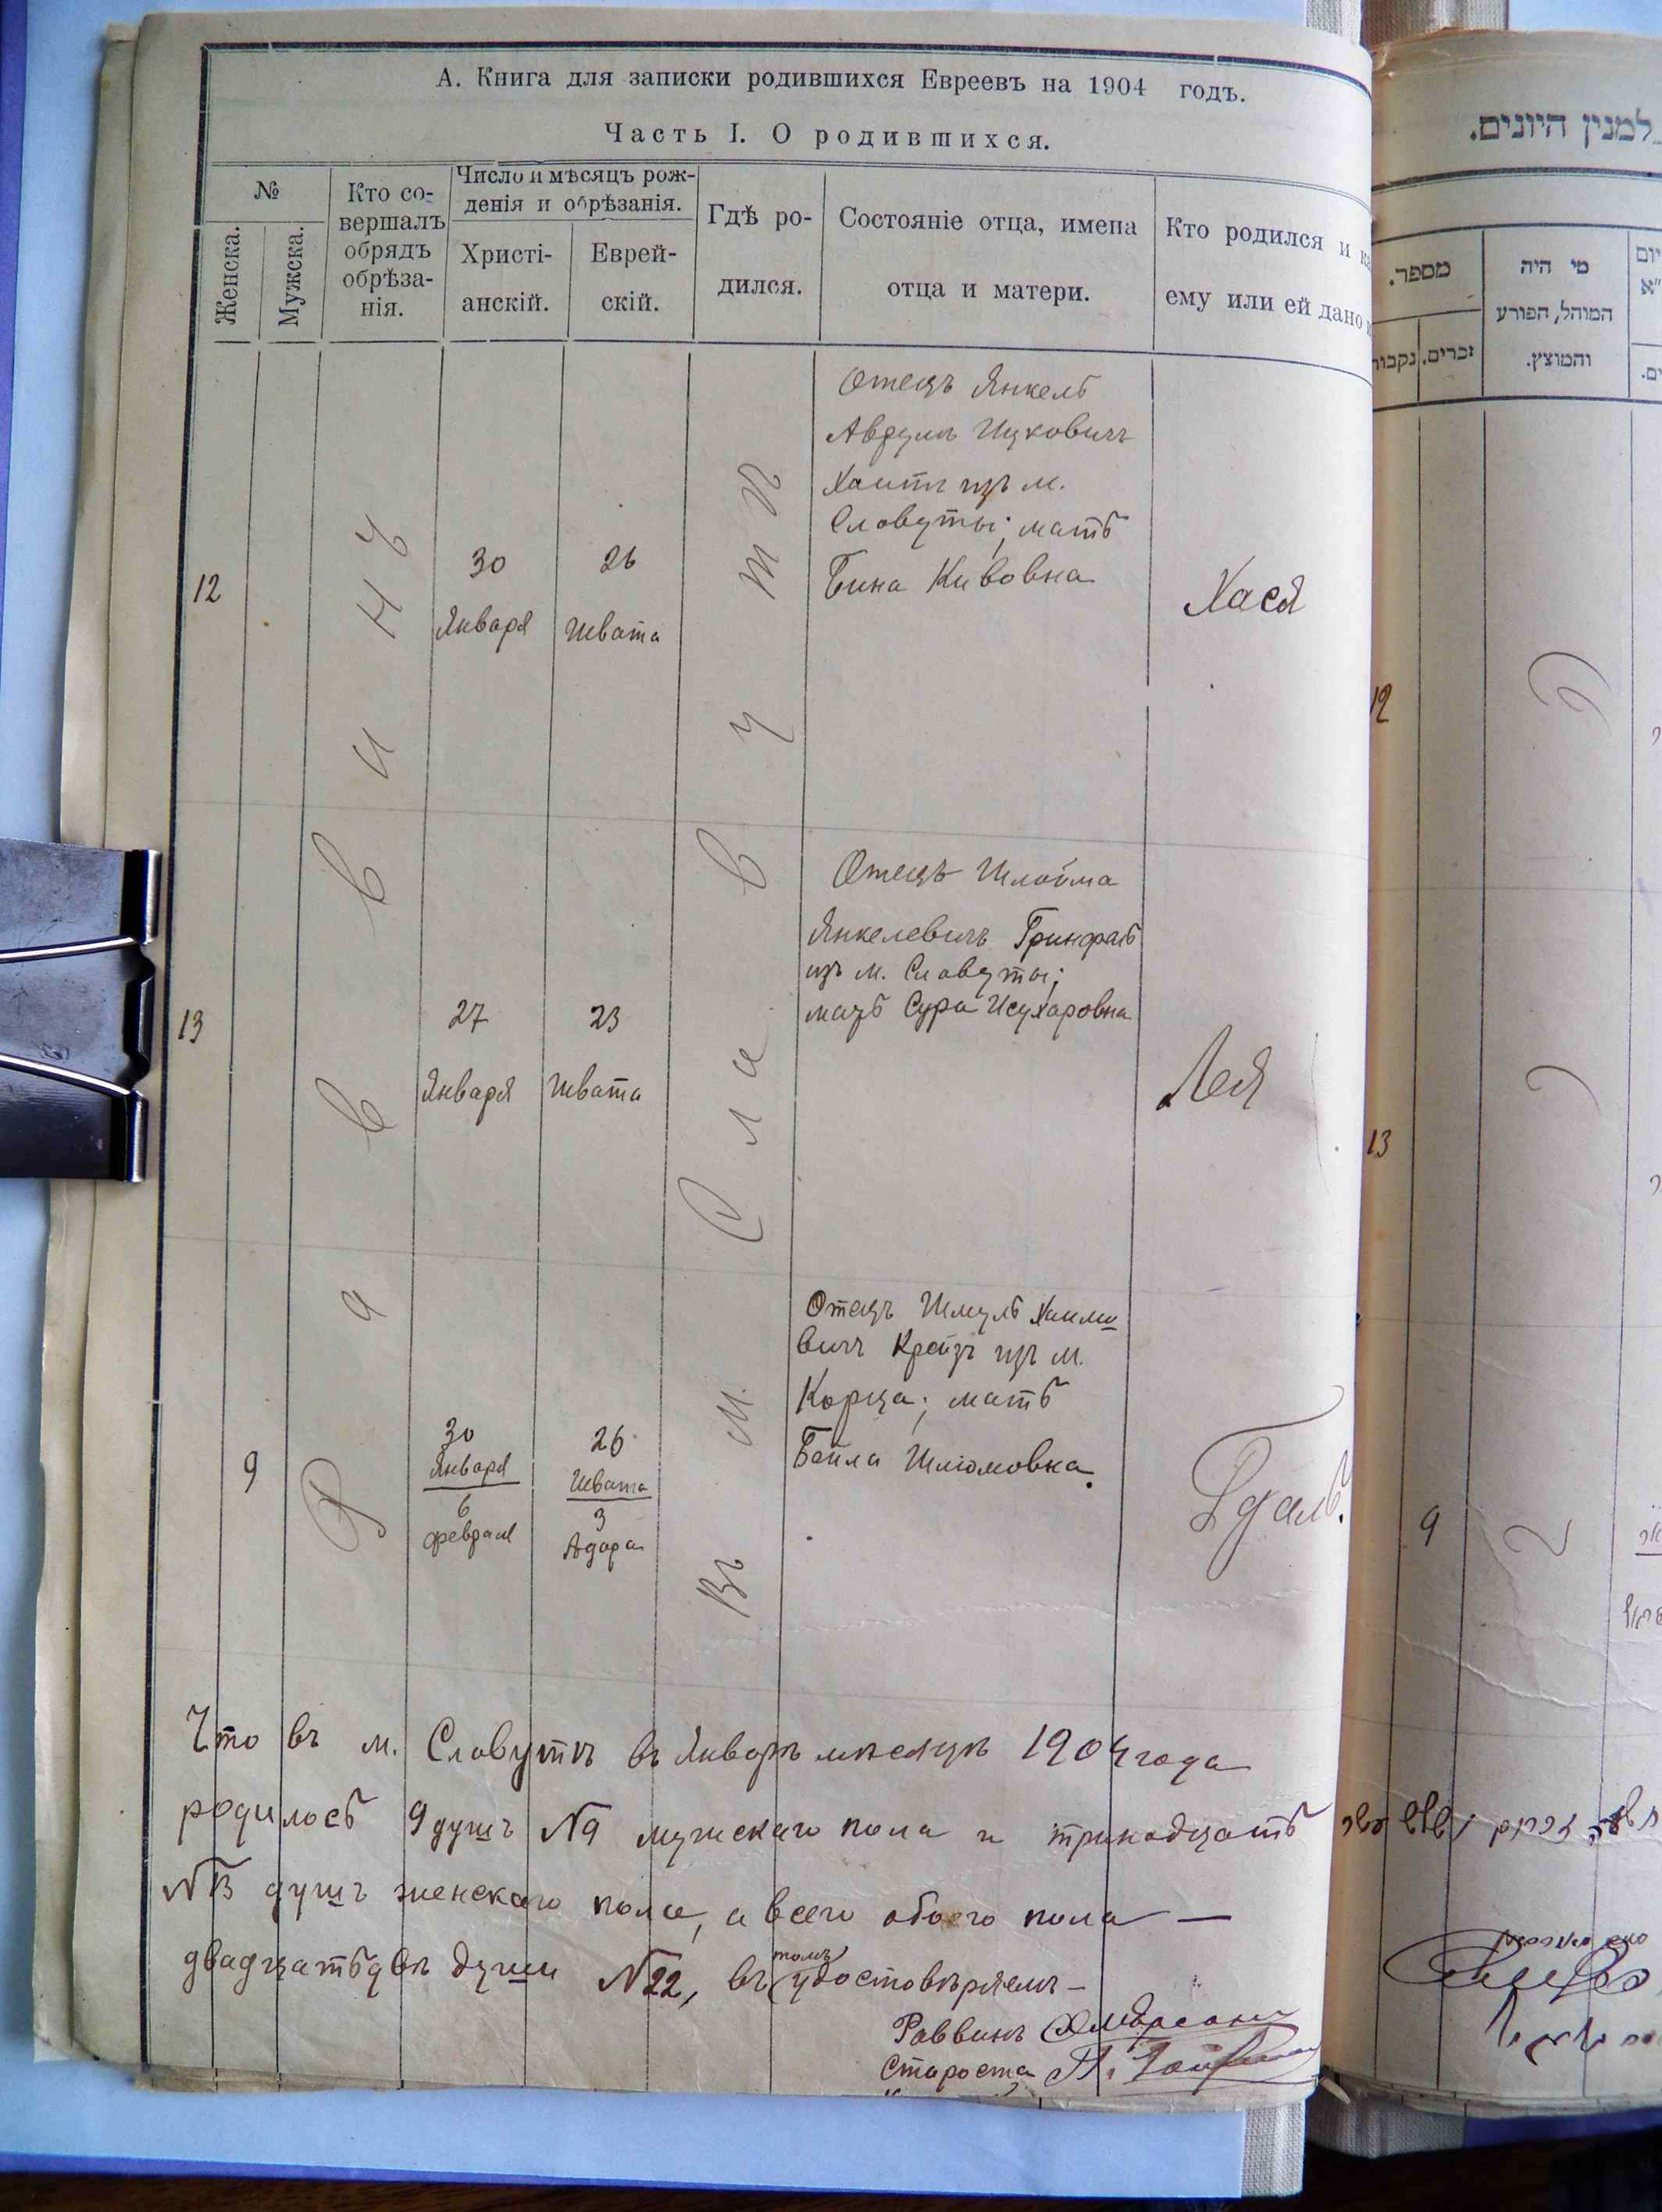 А. Книга для записки родившихся Евреевъ на 1904 годъ.
Часть I. О родившихся.
№
Женска.
Мужска.
Кто со-
вершалъ
обрядъ
обрѣза-
нія.
Число и мѣсяцъ рож-
денія и обрѣзанія.
Христі-
анскій.
Еврей-
скій.
Гдѣ ро-
дился.
Состояніе отца, имена
отца и матери.
Кто родился и
ему или ей дано
Раввинъ
Въ м. Славутѣ
12
30
Января
26
Швата
Отецъ Янкель
Аврумъ Ицковичъ
изъ м.
Словуты; мать
Бина Кивовна
Хася
13
27
Января
23
Швата
Отецъ Шлойма
Янкелевичъ
изъ м. Славуты;
мать Сура Исухаровна
Лея
9
30
Января
6
февраля
26
Швата
3
Адара
Отецъ Шмуль Хаимо
вичъ Крейзъ изъ м.
Корца; мать
Бейла Шлiомовна.
Гдаль.
Что въ м. Славутѣ въ Январѣ мѣсяцѣ 1904 года
родилось 9 душъ №9 мужскаго пола и тринадцать
№13 душъ женскаго пола, а всего обоего пола —
двадцать двѣ души №22, въ томъ удостовѣряемъ —
Раввинъ
Староста
למנין היונים.
מספר.
זכרים.
מי היה
המוהל, הפורע
והמוצץ.
12
13
9